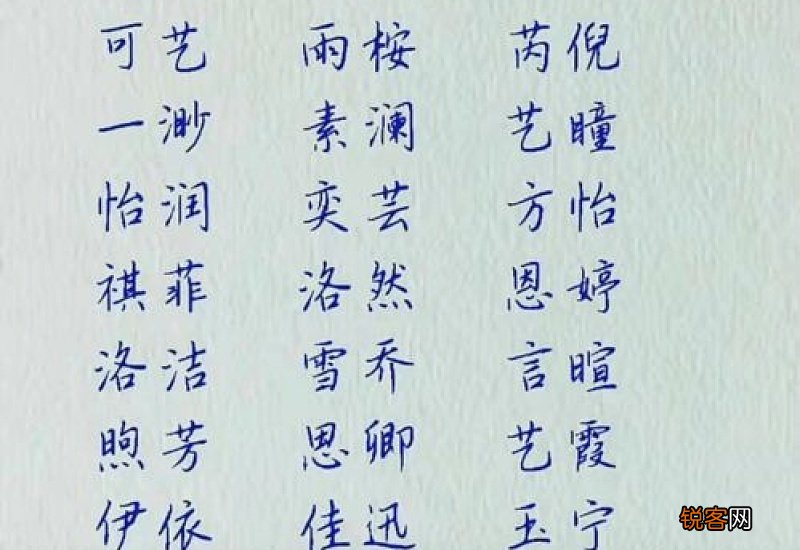 可艺 雨桉 芮倪
一渺 素澜 艺瞳
怡润 奕芸 方怡
祺菲 洛然 恩婷
洛洁 雪乔 言暄
煦芳 思卿 艺霞
伊依 佳迅 玉宁
锐客网